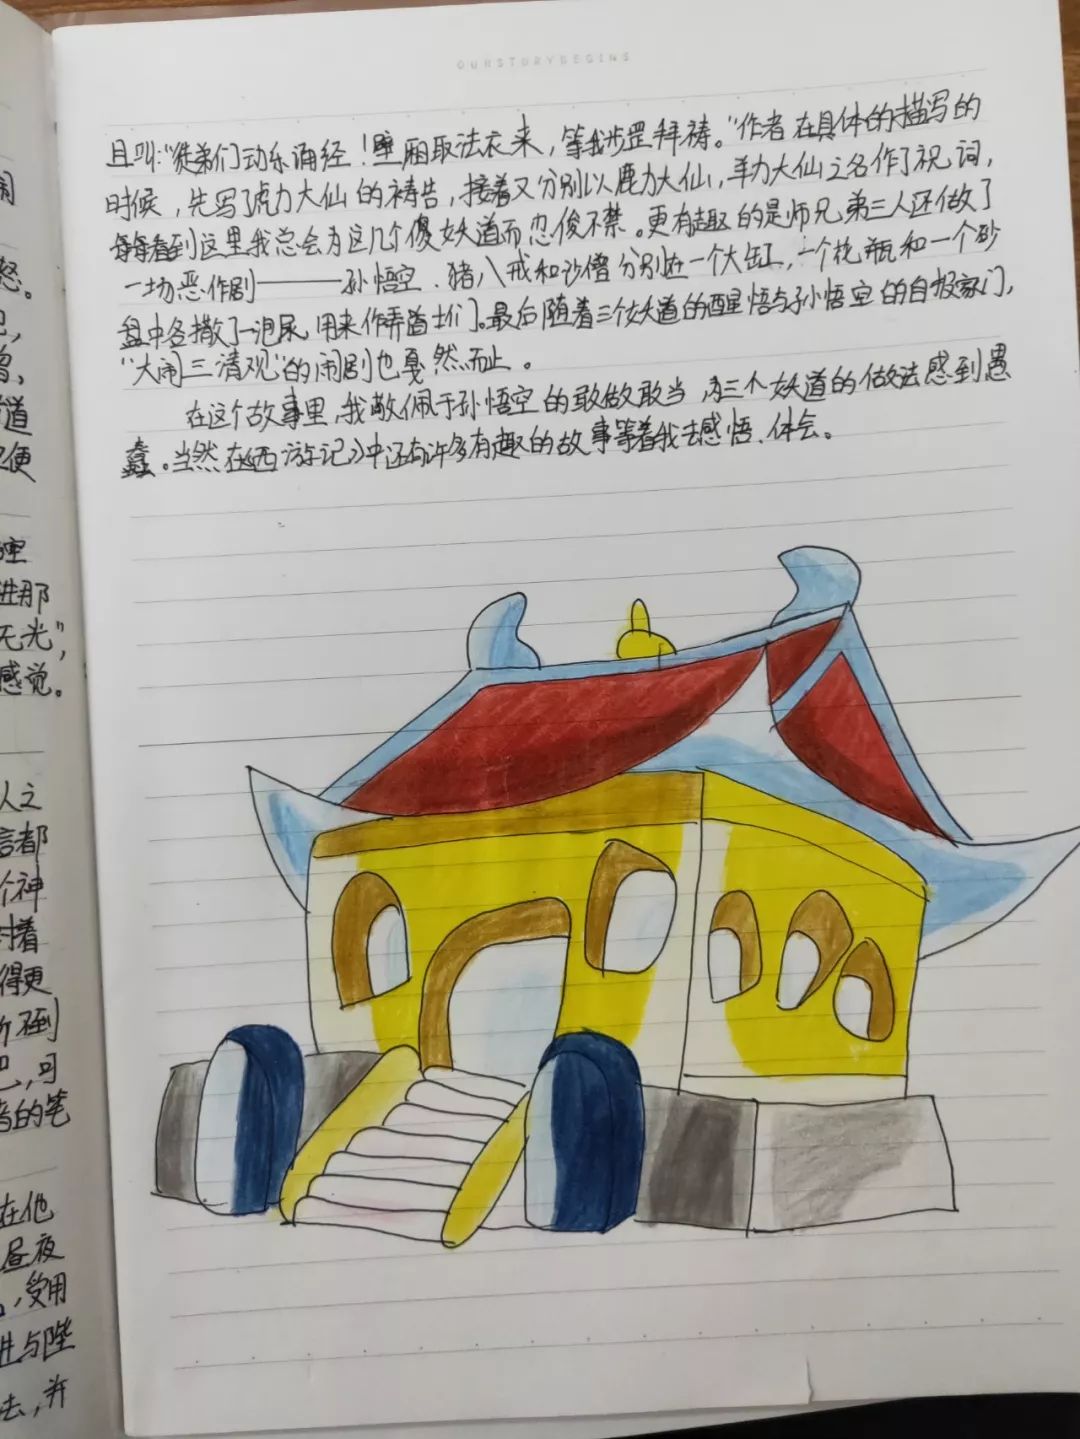 OURSTORYBEGINS
且叫:“徒弟们动乐诵经!壁厢取法衣来,等我步罡拜祷。”作者在具体的描写的
时候,先写了虎力大仙的祷告,接着又分别以鹿力大仙,羊力大仙之名作了祝词,
等等看到这里我总会为这几个傻妖道而忍俊不禁。更有趣的是师兄弟三人还做了
一场恶作剧——孙悟空、猪八戒和沙僧分别在一个大缸,一个花瓶和一个砂
盘中各撒了一泡尿,用来作弄道士们。最后随着三个妖道的醒悟与孙悟空的自报家门,
“大闹三清观”的闹剧也戛然而止。
在这个故事里,我敬佩于孙悟空的敢做敢当,为三个妖道的做法感到愚
蠢。当然在《西游记》中还有许多有趣的故事等着我去感悟、体会。
怒。
道
便
进那
无光”,
感觉。
人之
言都
个神
对着
得更
所到
,可
者的笔
在他
昼夜
,受用
进与陛
法,并